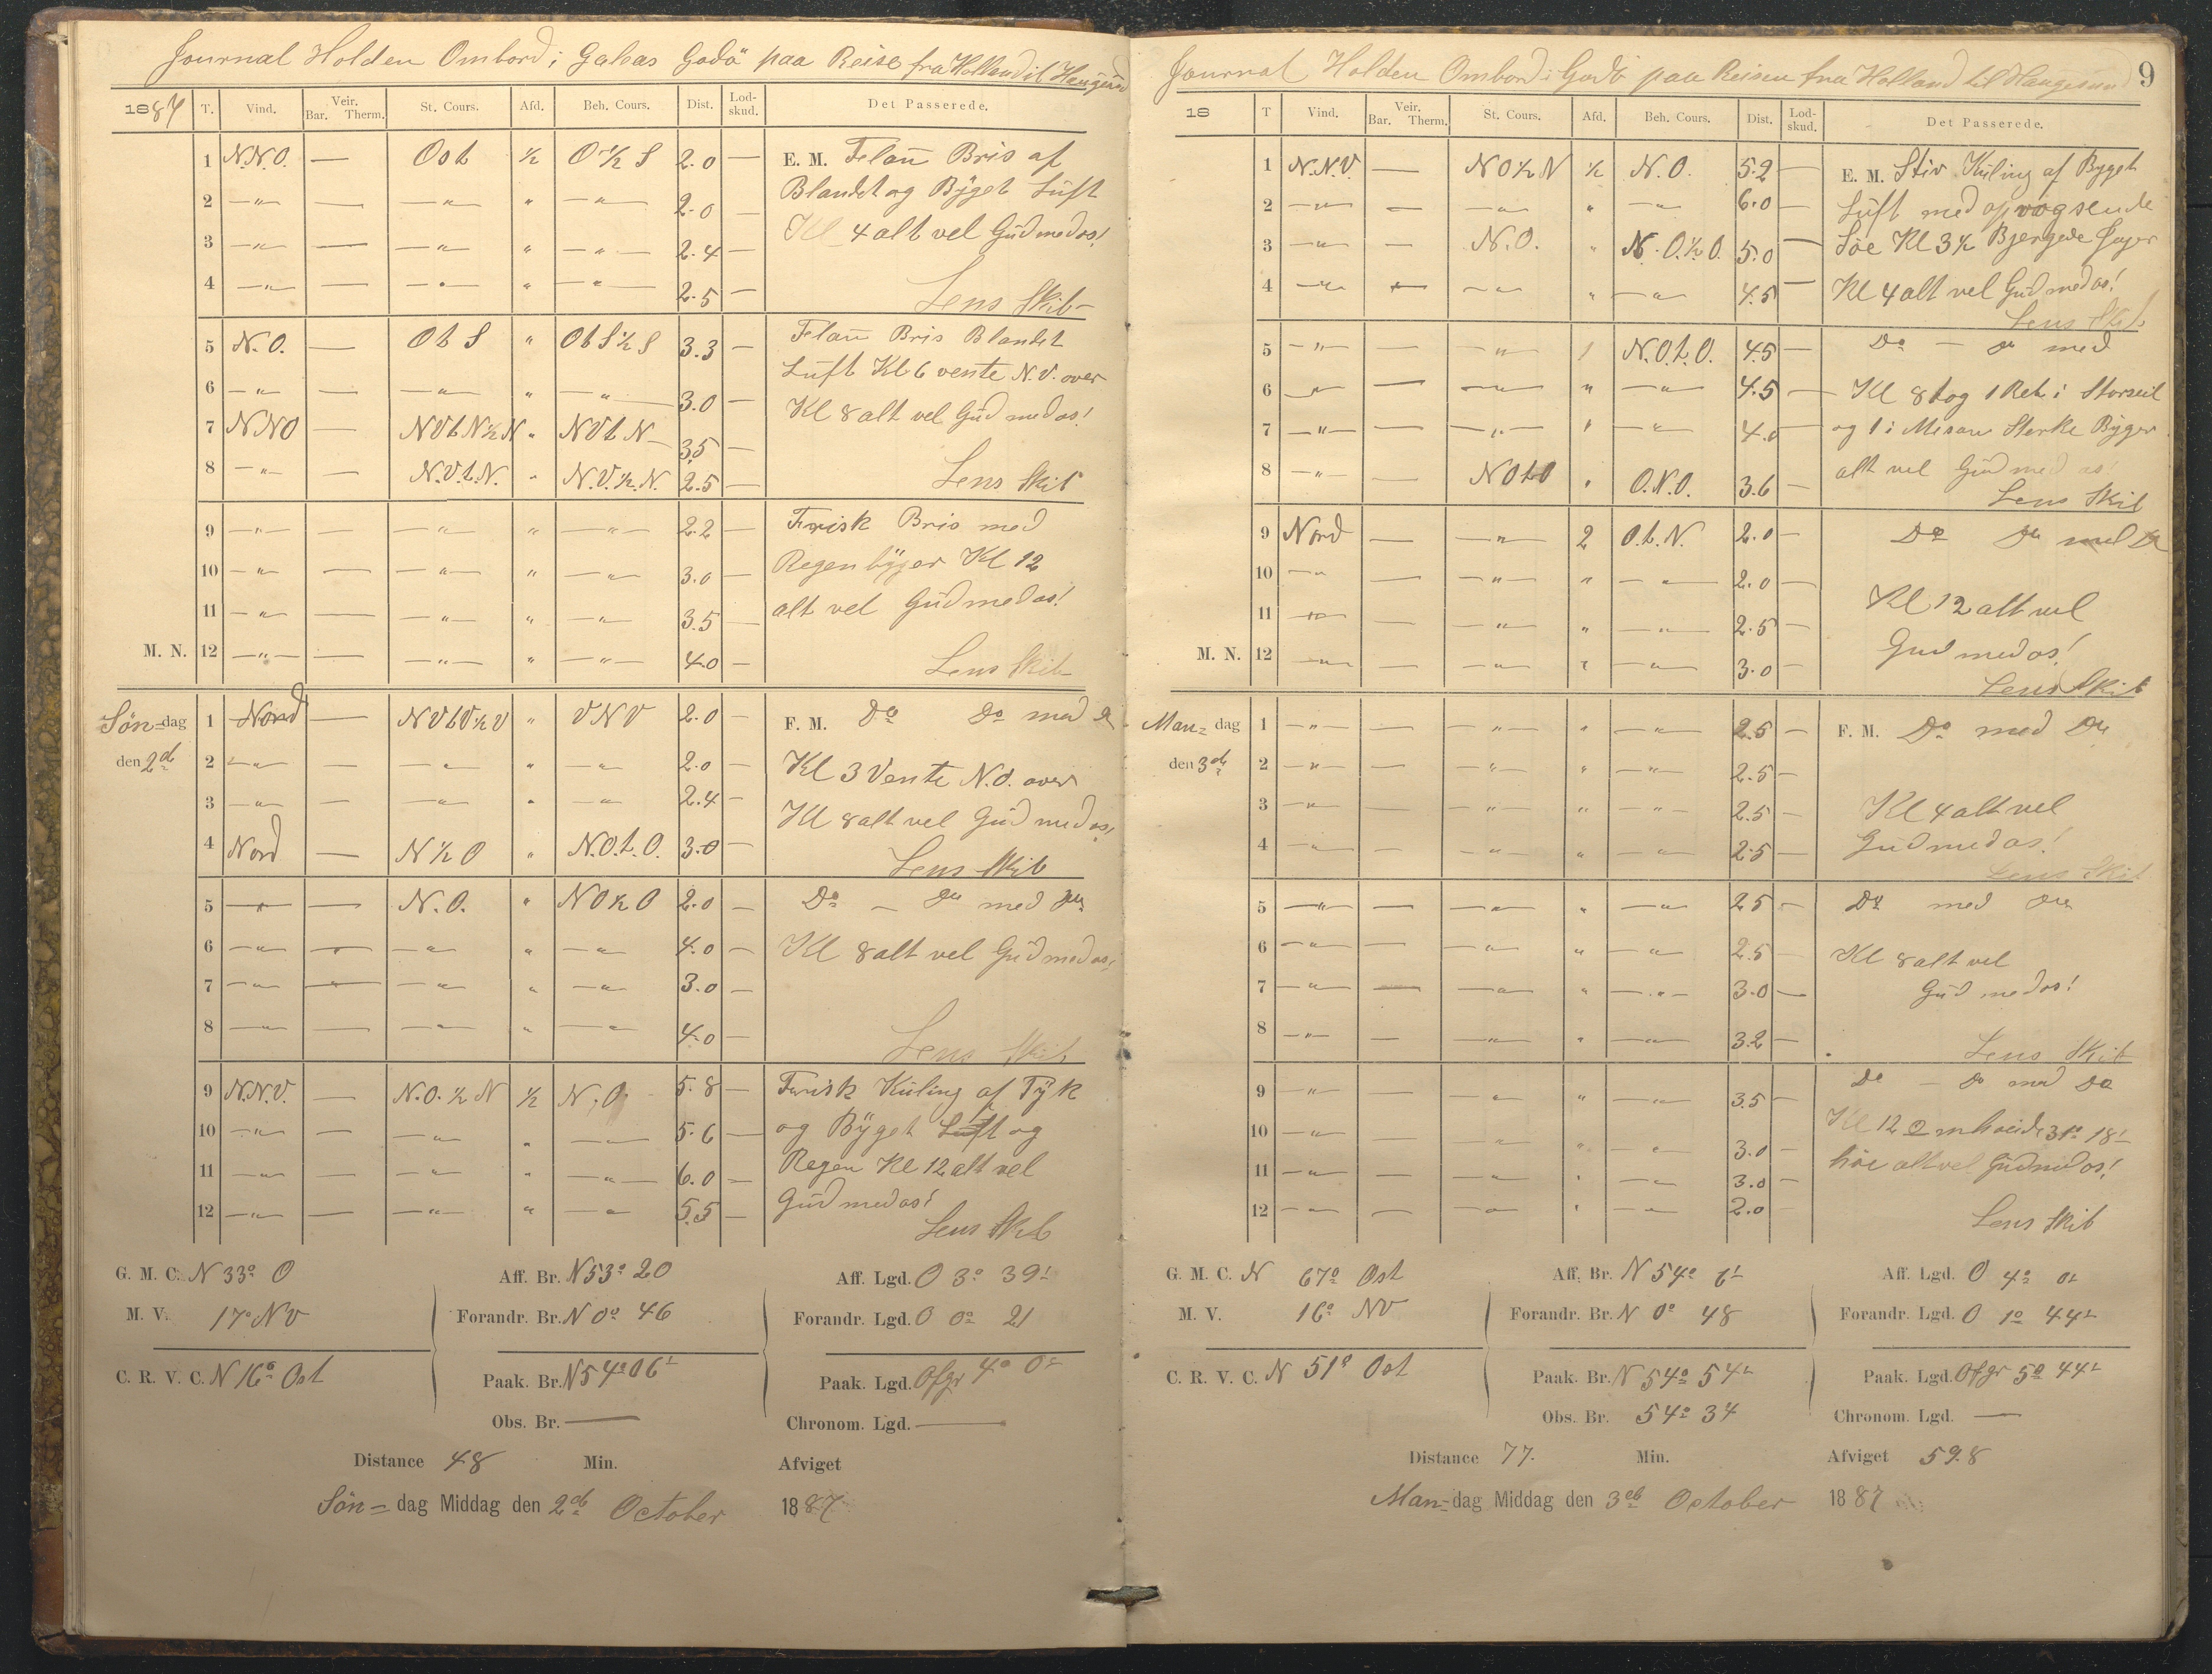 Journal Holden Ombord i Galeas Godö paa Reise fra Holland til Haugesund
1887 T. Vind. Veir. Bar. Therm. St. Cours. Afd. Beh. Cours. Dist. Lod-skud. Det Passerede.
1 N.N.O. — Ost ½ O½S 2.0 — E. M. Flau Bris af
2 —"— — —"— " —"— 2.0 — Blandet og Byget Luft
3 —"— — —"— " —"— 2.4 — Kl 4 alt vel Gud med os!
4 —"— — —"— " —"— 2.5 — Lens Skib
5 N.O. — Ot S " Ot S½S 3.3 — Flau Bris Blandet
6 —"— — —"— " —"— 3.0 — Luft Kl 6 vente N.V. over
7 NNO — NVtN½N " NVtN 3.5 — Kl 8 alt vel Gud med os!
8 —"— — N.V.t.N. " N.V.½.N. 2.5 — Lens Skib
9 —"— — —"— " —"— 2.2 — Frisk Bris med
10 —"— — —"— " —"— 3.0 — Regenbyger Kl 12
11 —"— — —"— " —"— 3.5 — alt vel Gud med os!
M. N. 12 —"— — —"— " —"— 4.0 — Lens Skib
Søn=dag 1 Nord — NVtV½V " VNV 2.0 — F. M. Do Do med Do
den 2d 2 —"— — —"— " —"— 2.0 — Kl 3 Vente N.O. over
3 —"— — —"— " —"— 2.4 — Kl 8 alt vel Gud med os!
4 Nord — N½O " N.O.t.O. 3.0 — Lens Skib
5 —"— — N.O. " NO½O 2.0 — Do — Do med Do
6 —"— — —"— " —"— 4.0 — Kl 8 alt vel Gud med os!
7 —"— — —"— " —"— 3.0 —
8 —"— — —"— " —"— 4.0 Lens Skib
9 N.N.V. — N.O.½N ½ N.O. 5.8 — Frisk Kuling af Tyk
10 —"— — —"— " —"— 5.6 — og Byget Luft og
11 —"— — —"— " —"— 6.0 — Regen Kl 12 alt vel
12 —"— — —"— " —"— 5.5 — Gud med os!
Lens Skib
G. M. C. N 33° O Aff. Br. N 53° 20 Aff. Lgd. O 3° 39'
M. V. 17° NV Forandr. Br. N 0° 46 Forandr. Lgd. O 0° 21
C. R. V. C. N 16° Ost Paak. Br. N 54° 06' Paak. Lgd. Ofgr 4° 0'
Obs. Br. — Chronom. Lgd. —
Distance 48 Min. Afviget
Søn=dag Middag den 2d October 1887
Journal Holden Ombord i Godö paa Reisen fra Holland til Haugesund 9
18 T Vind. Veir. Bar. Therm. St. Cours. Afd. Beh. Cours. Dist. Lod-skud. Det Passerede.
1 N.N.V. — NO½N ½ N.O. 5.2 — E. M. Stiv Kuling af Byget
2 —"— — —"— " —"— 6.0 — Luft med opvogsende
3 —"— — N.O. " N.O.½.O. 5.0 — Søe Kl 3½ Bjergede Jager
4 —"— — —"— " —"— 4.5 — Kl 4 alt vel Gud med os!
Lens Skib
5 —"— — —"— 1 N.O.t.O. 4.5 — Do — Do med
6 —"— — —"— " —"— 4.5 — Kl 8 tog 1 Reb i Storseil
7 —"— — —"— " —"— 4.0 — og 1 i Mesan Sterke Byger
8 —"— — NOtO " O.N.O. 3.6 — alt vel Gud med os!
Lens Skib
9 Nord — —"— 2 O.t.N. 2.0 — Do Do med Do
10 —"— — —"— " —"— 2.0 —
11 —"— — —"— " —"— 2.5 — Kl 12 alt vel
M. N. 12 —"— — —"— " —"— 3.0 — Gud med os!
Lens Skib
Man=dag 1 —"— — —"— " —"— 2.5 — F. M. Do med Do
den 3d 2 —"— — —"— " —"— 2.5 —
3 —"— — —"— " —"— 2.5 — Kl 4 alt vel
4 —"— — —"— " —"— 2.5 — Gud med os!
Lens Skib
5 —"— — —"— " —"— 2.5 — Do med Do
6 —"— — —"— " —"— 2.5 — Kl 8 alt vel
7 —"— — —"— " —"— 3.0 — Gud med os!
8 —"— — —"— " —"— 3.2 — Lens Skib
9 —"— — —"— " —"— 3.5 — Do — Do med Do
10 —"— — —"— " —"— 3.0 — Kl 12 31° 18'
11 —"— — —"— " —"— 3.0 — alt vel Gud med os!
12 —"— — —"— " —"— 2.0 — Lens Skib
G. M. C. N 67° Ost Aff. Br. N 54° 6' Aff. Lgd. O 4° 0'
M. V. 16° NV Forandr. Br. N 0° 48 Forandr. Lgd. O 1° 44'
C. R. V. C. N 51° Ost Paak. Br. N 54° 54' Paak. Lgd. Ofgr 5° 44'
Obs. Br. 54° 34 Chronom. Lgd. —
Distance 77. Min. Afviget 59.8
Man=dag Middag den 3d October 1887